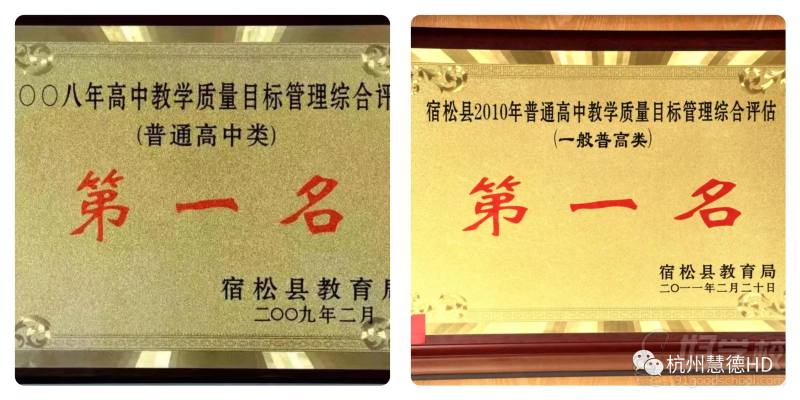 〇〇八年高中教学质量目标管理综合评
(普通高中类)
第一名
宿松县教育局
二〇〇九年二月
宿松县2010年普通高中教学质量目标管理综合评估
(一般普高类)
第一名
宿松县教育局
二〇一一年二月二十日
杭州慧德HD
好学校
91goodschool.com